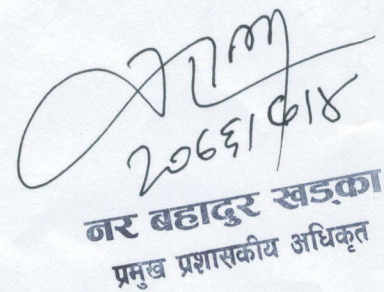 २०७६।७।४
नर बहादुर खड्का
प्रमुख प्रशासकीय अधिकृत